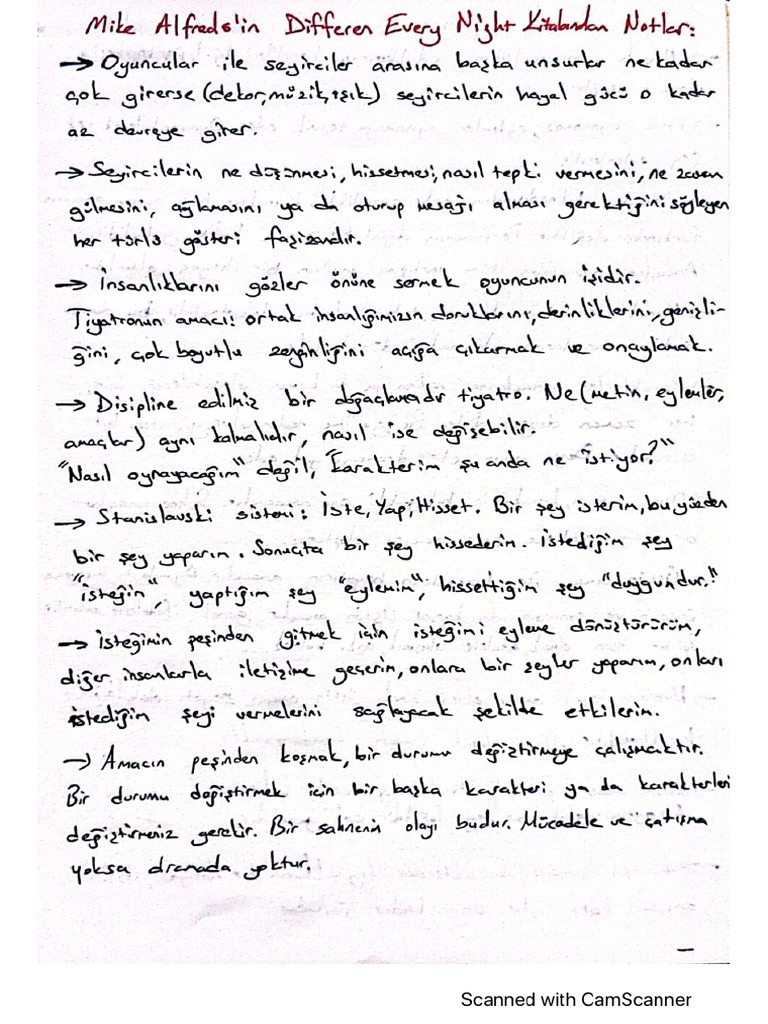 Mike Alfreds'in Differen Every Night Kitabından Notlar:
→ Oyuncular ile seyirciler arasına başka unsurlar ne kadar
çok girerse (dekor, müzik, ışık) seyircilerin hayal gücü o kadar
az devreye girer.
→ Seyircilerin ne düşünmesi, hissetmesi, nasıl tepki vermesini, ne zaman
gülmesini, ağlamasını ya da oturup mesajı alması gerektiğini söyleyen
her türlü gösteri faşizandır.
→ İnsanlıklarını gözler önüne sermek oyuncunun işidir.
Tiyatronun amacı: ortak insanlığımızın doruklarını, derinliklerini, genişli-
ğini, çok boyutlu zenginliğini açığa çıkarmak ve onaylamak.
→ Disipline edilmiş bir doğaçlamadır tiyatro. Ne (metin, eylemler,
amaçlar) aynı kalmalıdır, nasıl ise değişebilir.
"Nasıl oynayacağım" değil, "Karakterim şu anda ne istiyor?"
→ Stanislavski sistemi: İste, Yap, Hisset. Bir şey isterim, bu yüzden
bir şey yaparım. Sonuçta bir şey hissederim. İstediğim şey
"isteğin", yaptığım şey "eylemim", hissettiğim şey "duygundur."
→ İsteğimin peşinden gitmek için isteğimi eyleme dönüştürürüm,
diğer insanlarla iletişime geçerim, onlara bir şeyler yaparım, onları
istediğim şeyi vermelerini sağlayacak şekilde etkilerim.
→ Amacın peşinden koşmak, bir durumu değiştirmeye çalışmaktır.
Bir durumu değiştirmek için bir başka karakteri ya da karakterleri
değiştirmeniz gerekir. Bir sahnenin olayı budur. Mücadele ve çatışma
yoksa dramada yoktur.
Scanned with CamScanner